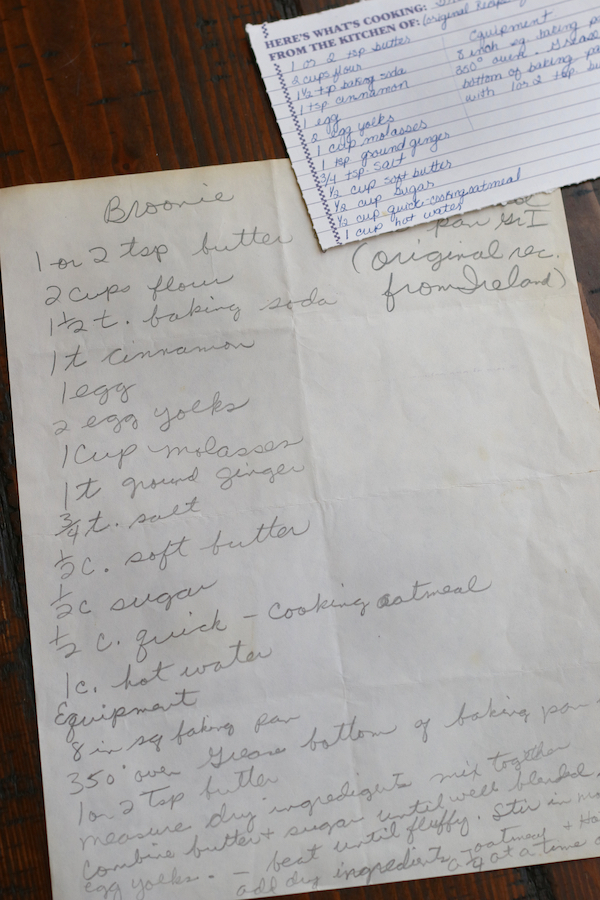 HERE'S WHAT'S COOKING:
FROM THE KITCHEN OF: (original Recipe
1 or 2 tsp butter
2 cups flour
1½ tsp baking soda
1 tsp cinnamon
1 egg
2 egg yolks
1 cup molasses
1 tsp ground ginger
3/4 tsp salt
½ cup soft butter
½ cup sugar
½ cup quick-cooking oatmeal
1 cup hot water
Equipment
8 inch sq baking
350°. Grease
bottom of baking
with 1 or 2 tsp
Broonie
1 or 2 tsp butter
2 cups flour
1½ t. baking soda
1 t cinnamon
1 egg
2 egg yolks
1 cup molasses
1 t ground ginger
3/4 t. salt
½ c. soft butter
½ c sugar
½ c. quick - cooking oatmeal
1c. hot water
pan
(original rec.
from Ireland)
Equipment
8 in sq baking pan
350° oven Grease bottom of baking pan
1 or 2 Tsp butter
measure dry ingredients mix together
Combine butter + sugar until well blended
egg yolks. - beat until fluffy. Stir in
add dry ingredients, oatmeal +
at a time